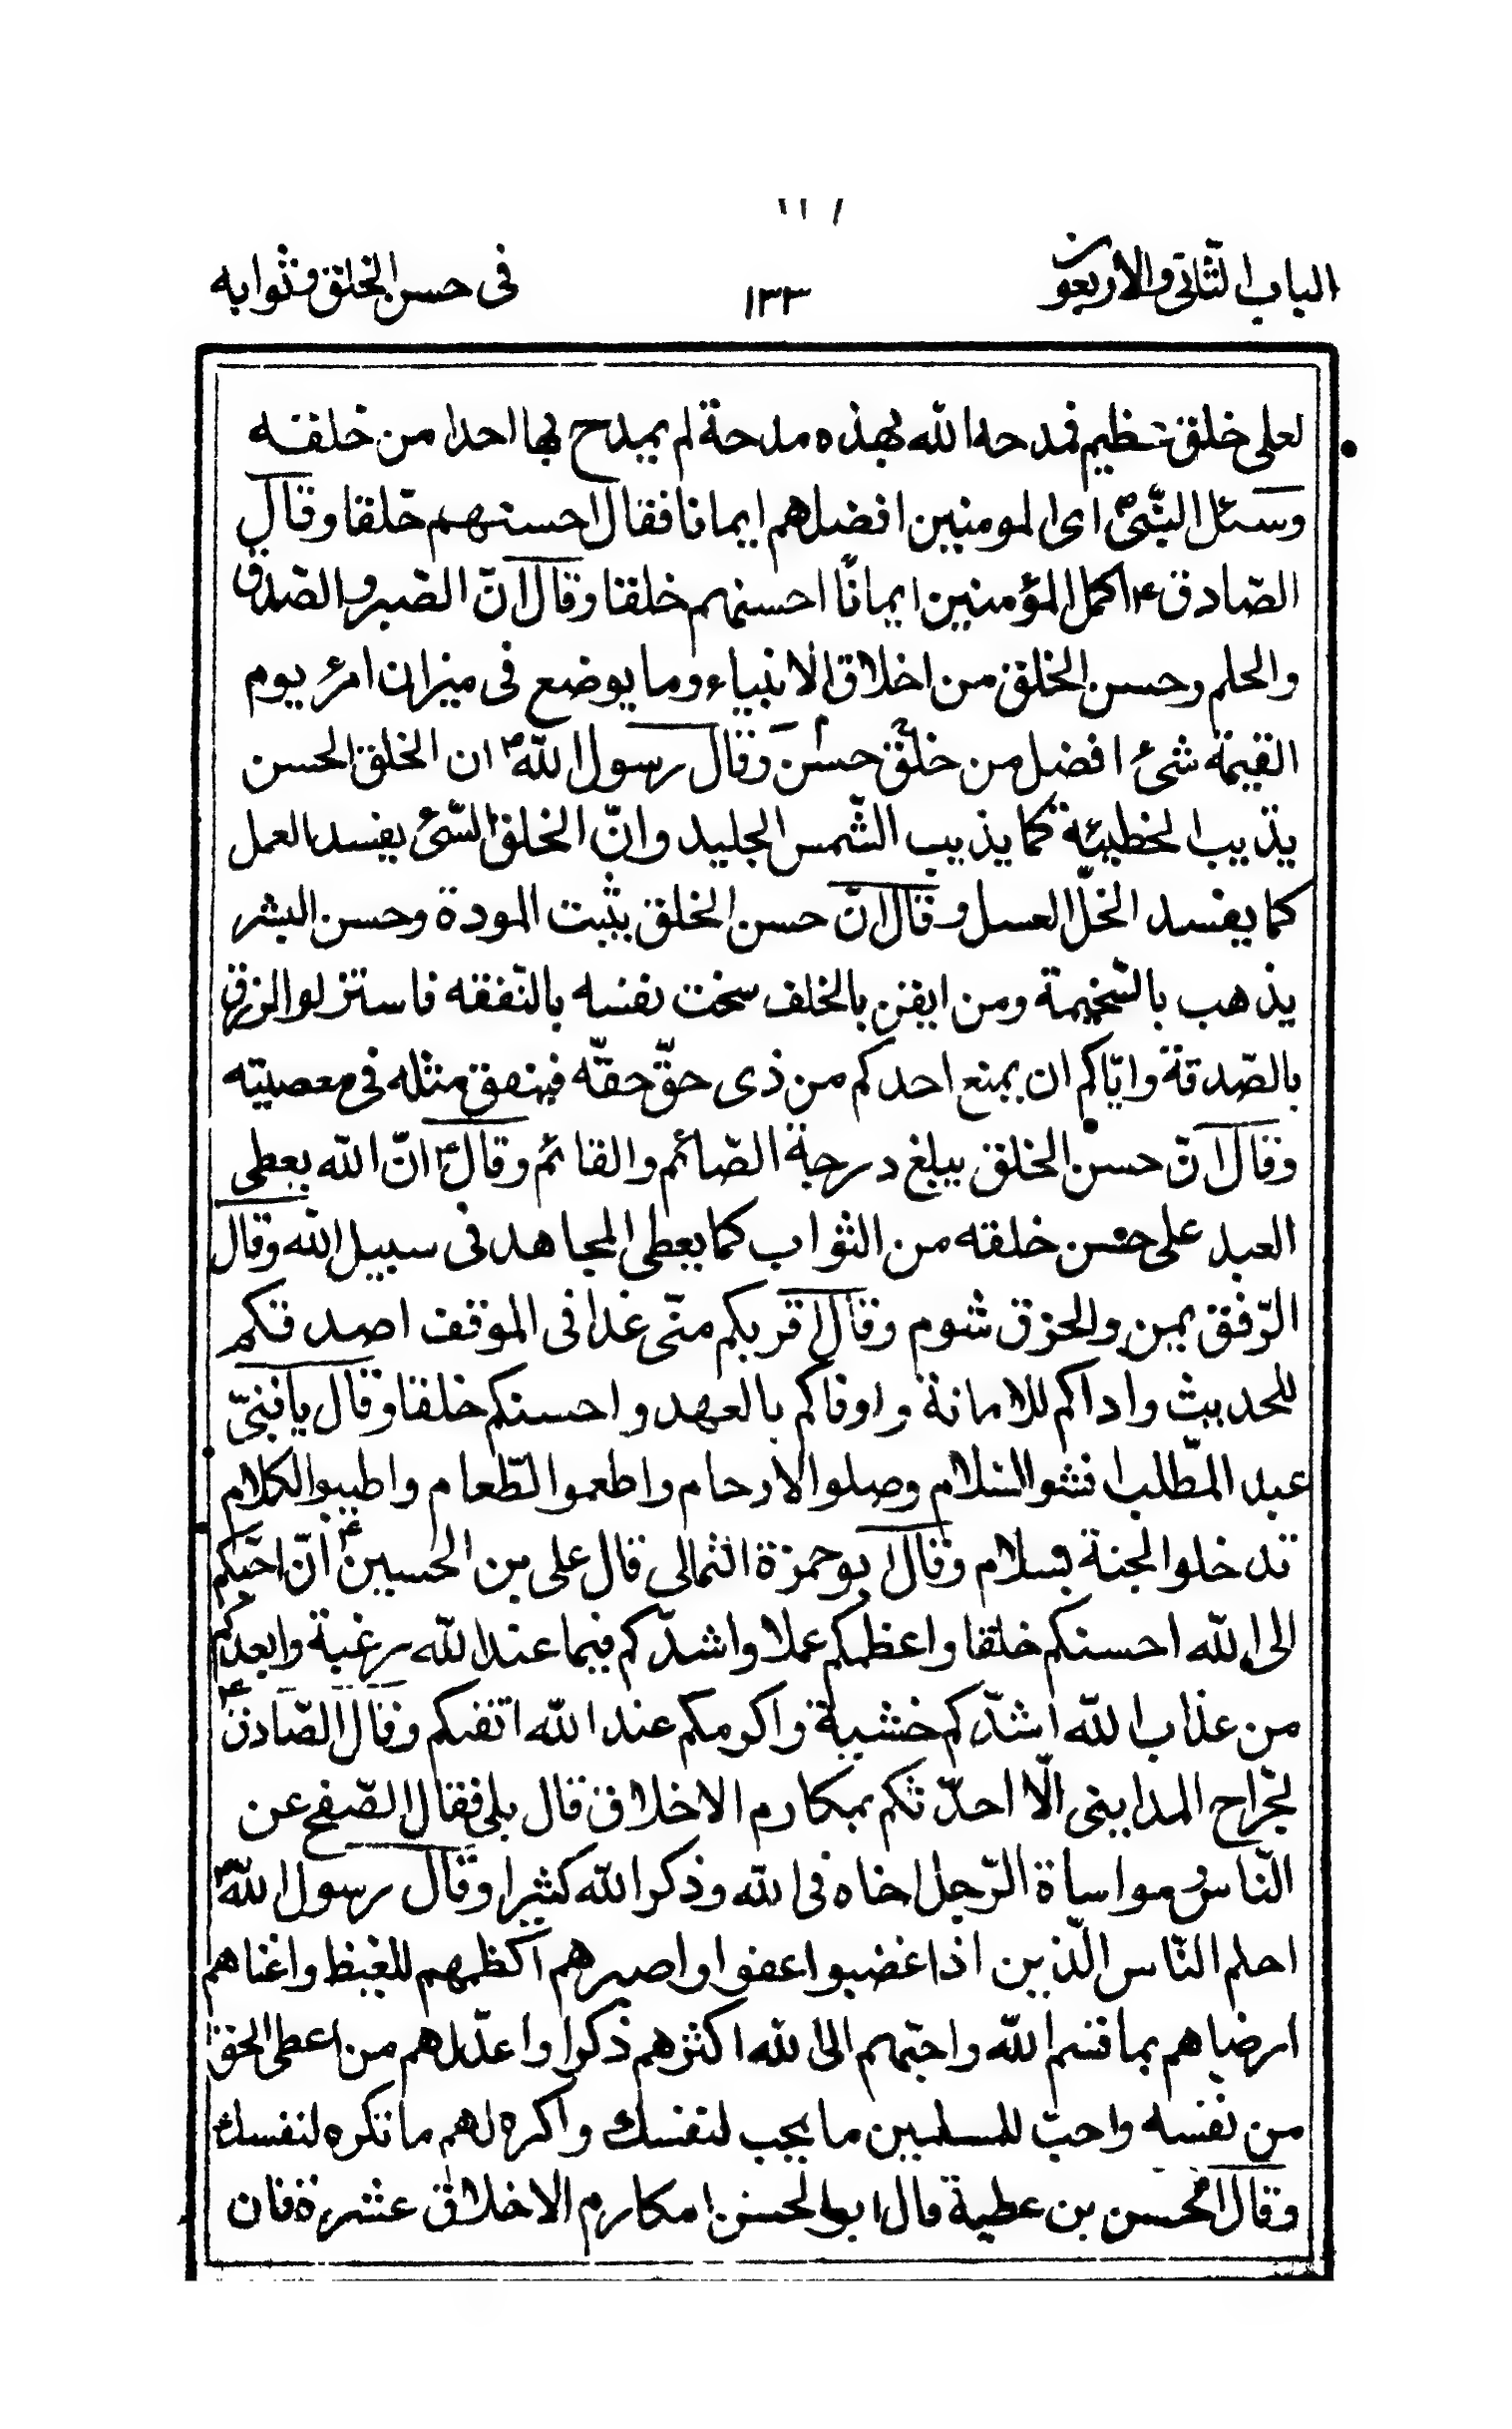 الباب الثاني والأربعون ١٣٣ في حسن الخلق وثوابه
لعلى خلق عظيم فمدحه الله بهذه مدحة لم يمدح بها احدا من خلقه
وسئل النّبيّ ص اى المومنين افضلهم ايمانا فقال احسنهم خلقا وقال
الصّادق ع اكمل المؤمنين ايمانًا احسنهم خلقا وقال انّ الصّبر والصّدق
والحلم وحسن الخلق من اخلاق الانبياء وما يوضع في ميزان امرئ يوم
القيمة شئ افضل من خلق حسن وقال رسول الله ص ان الخلق الحسن
يذيب الخطيئة كما يذيب الشّمس الجليد وانّ الخلق السّئ يفسد العمل
كما يفسد الخلّ العسل وقال انّ حسن الخلق يثبت المودة وحسن البشر
يذهب بالسّخيمة ومن ايقن بالخلف سخت نفسه بالنّفقه فاستنزلوا الرزق
بالصّدقة وايّاكم ان يمنع احدكم من ذى حقّ حقّه فينفق مثله في معصيته
وقال انّ حسن الخلق يبلغ درجة الصّائم والقائم وقال ع انّ الله يعطى
العبد على حسن خلقه من الثواب كما يعطى المجاهد في سبيل الله وقال
الرّفق يمن والخرق شوم وقال اقربكم منّى غدا في الموقف اصدقكم
للحديث واداكم للامانة واوفاكم بالعهد واحسنكم خلقا وقال يا بنىّ
عبد المطّلب افشوا السّلام وصلوا الارحام واطعموا الطّعام واطيبوا الكلام
تدخلوا الجنة بسلام وقال ابو حمزة الثمالى قال على بن الحسين ع انّ احبّكم
الى الله احسنكم خلقا واعظمكم عملا واشدّكم فيما عند الله رغبة وابعدكم
من عذاب الله اشدّكم خشية واكرمكم عند الله اتقيكم وقال الصّادق ع
لجّراح المدايني الّا احدّثكم بمكارم الاخلاق قال بلى فقال الصّفح عن
النّاس ومواساة الرّجل اخاه في الله وذكر الله كثيرا وقال رسول الله ص
احلم النّاس الّذين اذا غضبوا عفوا واصبرهم اكظمهم للغيظ واغناهم
ارضاهم بما قسم الله واحبّهم الى الله اكثرهم ذكرا واعدلهم من اعطى الحق
من نفسه واحبّ للمسلمين ما يحب لنفسك واكره لهم ما تكره لنفسك
وقال الحسن بن عطية قال ابو الحسن مكارم الاخلاق عشرة فان